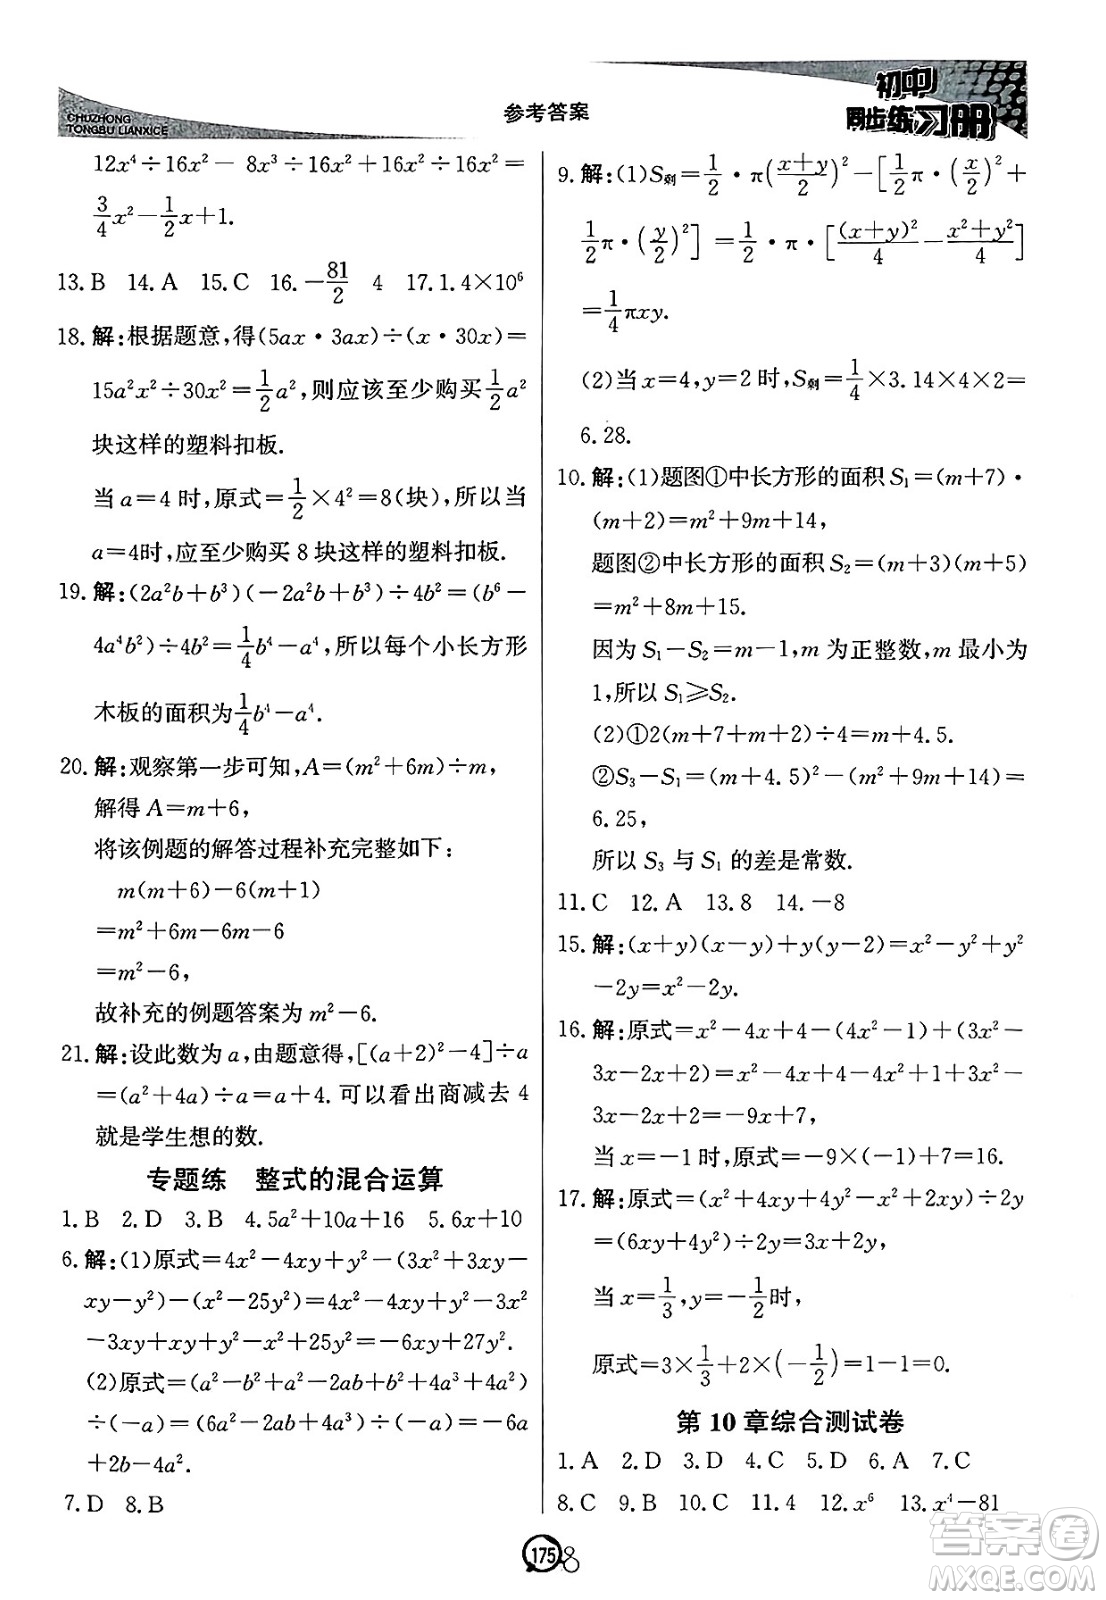 CHUZHONG
TONGBU LIANXICE
参考答案
初中
同步练习册
12x⁴÷16x²－8x³÷16x²＋16x²÷16x²＝
3/4x²－1/2x＋1.
13.B　14.A　15.C　16.－81/2　4　17.1.4×10⁶
18.解:根据题意,得(5ax·3ax)÷(x·30x)＝
15a²x²÷30x²＝1/2a²,则应该至少购买1/2a²
块这样的塑料扣板.
当a＝4时,原式＝1/2×4²＝8(块),所以当
a＝4时,应至少购买8块这样的塑料扣板.
19.解:(2a²b＋b³)(－2a²b＋b³)÷4b²＝(b⁶－
4a⁴b²)÷4b²＝1/4b⁴－a⁴,所以每个小长方形
木板的面积为1/4b⁴－a⁴.
20.解:观察第一步可知,A＝(m²＋6m)÷m,
解得A＝m＋6,
将该例题的解答过程补充完整如下:
m(m＋6)－6(m＋1)
＝m²＋6m－6m－6
＝m²－6,
故补充的例题答案为m²－6.
21.解:设此数为a,由题意得,[(a＋2)²－4]÷a
＝(a²＋4a)÷a＝a＋4.可以看出商减去4
就是学生想的数.
专题练　整式的混合运算
1.B　2.D　3.B　4.5a²＋10a＋16　5.6x＋10
6.解:(1)原式＝4x²－4xy＋y²－(3x²＋3xy－
xy－y²)－(x²－25y²)＝4x²－4xy＋y²－3x²
－3xy＋xy＋y²－x²＋25y²＝－6xy＋27y².
(2)原式＝(a²－2ab＋b²－b²＋4a³＋5a²)
÷(－a)＝(6a²－2ab＋4a³)÷(－a)＝－6a
＋2b－4a².
7.D　8.B
9.解:(1)S剩＝1/2·π((x＋y)/2)²－[1/2π·(x/2)²＋
1/2π·(y/2)²]＝1/2·π·[(x＋y)²/4－(x²＋y²)/4]
＝1/4πxy.
(2)当x＝4,y＝2时,S剩＝1/4×3.14×4×2＝
6.28.
10.解:(1)题图①中长方形的面积S₁＝(m＋7)·
(m＋2)＝m²＋9m＋14,
题图②中长方形的面积S₂＝(m＋3)(m＋5)
＝m²＋8m＋15.
因为S₁－S₂＝m－1,m为正整数,m最小为
1,所以S₁≥S₂.
(2)①2(m＋7＋m＋2)÷4＝m＋4.5.
②S₃－S₁＝(m＋4.5)²－(m²＋9m＋14)＝
6.25,
所以S₃与S₁的差是常数.
11.C　12.A　13.8　14.－8
15.解:(x＋y)(x－y)＋y(y－2)＝x²－y²＋y²
－2y＝x²－2y.
16.解:原式＝x²－4x＋4－(4x²－1)＋(3x²－
3x－2x＋2)＝x²－4x＋4－4x²＋1＋3x²－
3x－2x＋2＝－9x＋7,
当x＝－1时,原式＝－9×(－1)＋7＝16.
17.解:原式＝(x²＋4xy＋4y²－x²＋2xy)÷2y
＝(6xy＋4y²)÷2y＝3x＋2y,
当x＝1/3,y＝－1/2时,
原式＝3×1/3＋2×(－1/2)＝1－1＝0.
第10章综合测试卷
1.A　2.D　3.D　4.C　5.C　6.A　7.C
8.C　9.B　10.C　11.4　12.x⁶　13.x⁴－81
175
8
答案卷
MXQE.COM